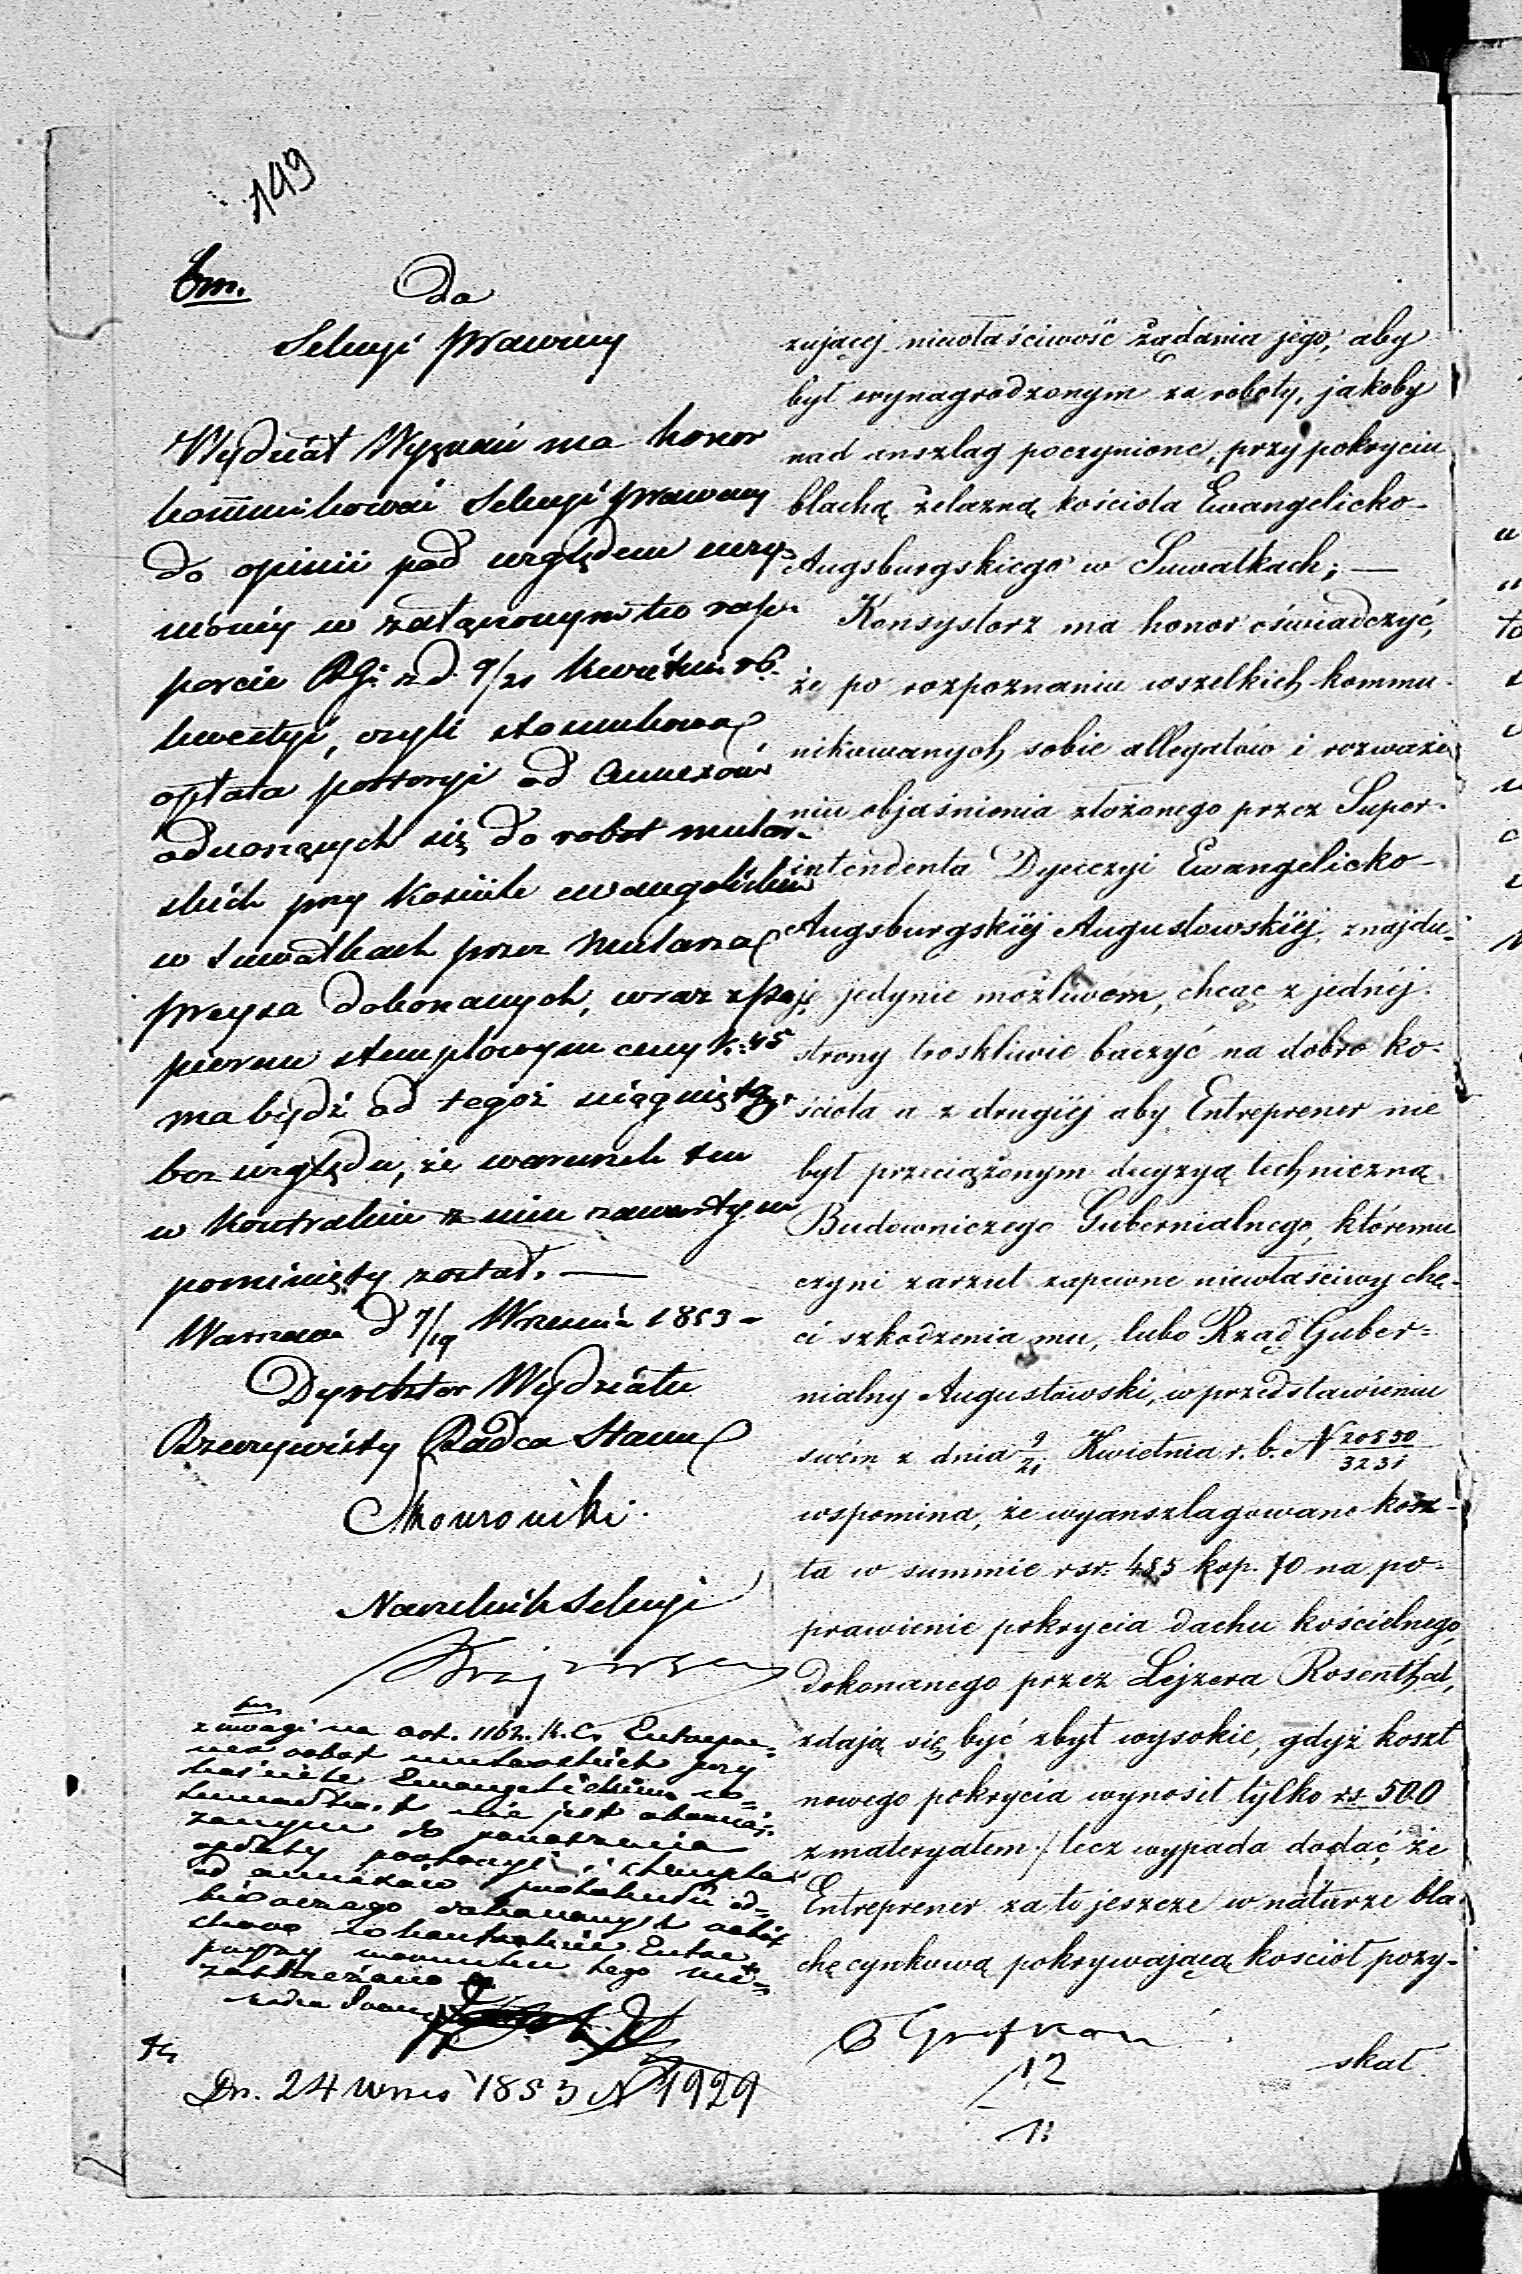 149
Do
Sekcyi Prawnéy
Wydział Wyznań ma honor
kommunikować Sekcyi prawney
do opinii pod względem
w załączonym tu rap-
porcie RG: z d. 9/21 Kwietnia rb.
kwestyi, czyli stosunkowa
opłata portoryi od Annexów
odnoszących się do robot mular-
skich przy Kościele ewangelickim
w Suwałkach przez Mularza
Preysa dokonanych, wraz z pa-
pierem stemplowym ceny k: 45
ma bydź od tegoż ściągniętą,
bez względu, że warunek ten
w Kontrakcie z nim zawartym
pominięty został. —
Warszawa d 7/19 Września 1853
Dyrektor Wydziału
Rzeczywisty Radca Stanu
Naczelnik Sekcyi
z uwagi na art. 1162. K. C. Entrepre-
ner robot mularskich przy
kościele Ewangelickim w
Suwałkach nie jest obowią-
zanym do ponoszenia
opłaty portoryi i stempla
od annexów protokułu od-
biorczego dokonanych robót
skoro w kontrakcie Entre
pryzy warunku tego nie
zastrzeżono
Dn. 24 Wrześ 1853 N 1929
zującej niewłaściwość żądania jego, aby
był wynagrodzonym za roboty, jakoby
nad anszlag poczynione, przy pokryciu
blachą żelazną kościoła Ewangelicko-
Augsburgskiego w Suwałkach; —
Konsystorz ma honor oświadczyć,
że po rozpoznaniu wszelkich kommu-
nikowanych sobie allegatów i rozważe-
niu objaśnienia złożonego przez Super-
intendenta Dyecezyi Ewangelicko-
Augsburgskiéj Augustowskiéj, znajdu-
je jedynie możliwém, chcąc z jednéj
strony troskliwie baczyć na dobro ko-
ścioła a z drugiéj aby Entreprener nie
był przeciążonym decyzyą techniczną
Budowniczego Gubernialnego, któremu
czyni zarzut zapewne niewłaściwy chę-
ci szkodzenia mu, lubo Rząd Guber-
nialny Augustowski, w przedstawieniu
swém z dnia 9/21 Kwietnia r. b. N 20830/3231
wspomina, że wyanszlagowane kosz-
ta w summie rsr. 485 kop. 70 na po-
prawienie pokrycia dachu kościelnego,
dokonanego przez Lejzera Rosenthal,
zdają się być zbyt wysokie, gdyż koszt
nowego pokrycia wynosił tylko rs. 500
z materyałem / lecz wypada dodać, że
Entreprener za to jeszcze w naturze bla-
chę cynkową pokrywającą kościół pozy-
skał
12